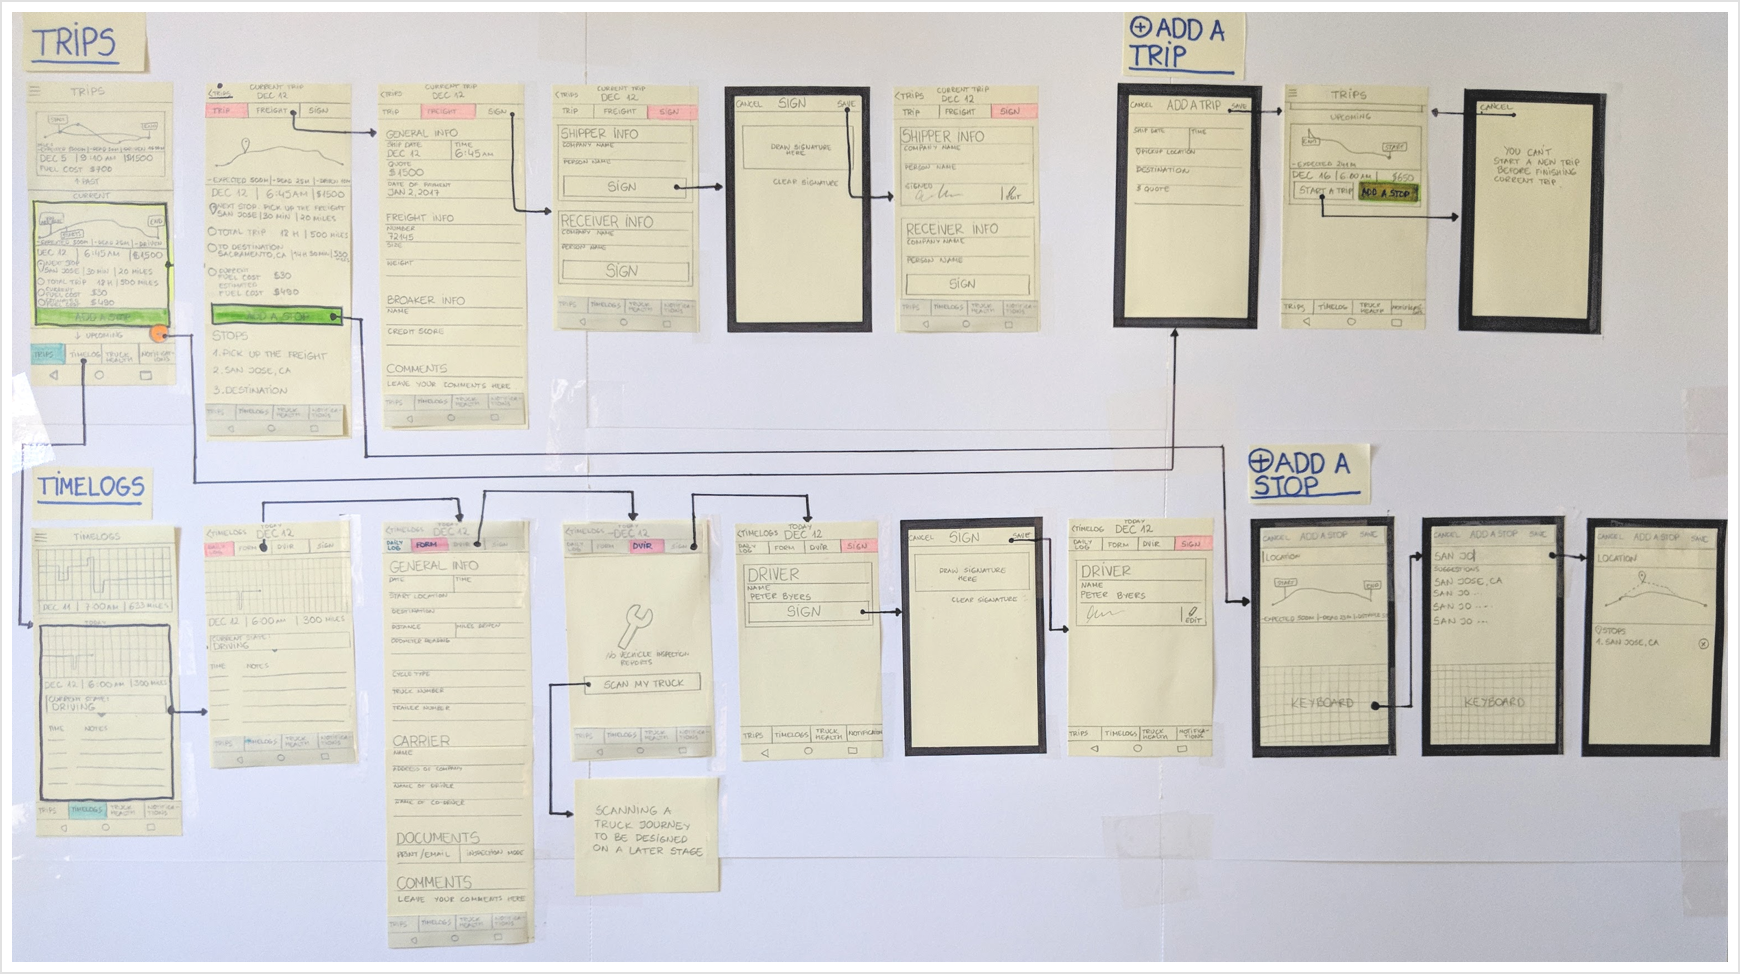 TRIPS
TRIPS
START
END
DEC 5 | 9:10 AM | $1500
FUEL COST $700
↑ PAST
CURRENT
END
DEC 12 | 6:45 AM | $1500
NEXT STOP
SAN JOSE | 30 MIN | 20 MILES
TOTAL TRIP 12 H | 500 MILES
CURRENT
FUEL COST $30
ESTIMATED
FUEL COST $490
ADD A STOP
↓ UPCOMING
TRIPS
TIMELOGS
TRUCK HEALTH
NOTIFICATIONS
<TRIPS
CURRENT TRIP
DEC 12
TRIP
FREIGHT
SIGN
DEC 12 | 6:45AM | $1500
NEXT STOP. PICK UP THE FREIGHT
SAN JOSE | 30 MIN | 20 MILES
TOTAL TRIP 12 H | 500 MILES
TO DESTINATION
SACRAMENTO, CA
CURRENT
FUEL COST $30
ESTIMATED
FUEL COST $490
ADD A STOP
STOPS
1. PICK UP THE FREIGHT
2. SAN JOSE, CA
3. DESTINATION
TRIPS
TIMELOGS
TRUCK HEALTH
NOTIFICATIONS
<TRIPS
CURRENT TRIP
DEC 12
TRIP
FREIGHT
SIGN
GENERAL INFO
SHIP DATE
TIME
DEC 12
6:45 AM
QUOTE
$1500
DATE OF PAYMENT
JAN 2, 2017
FREIGHT INFO
NUMBER
72145
SIZE
WEIGHT
BROAKER INFO
NAME
CREDIT SCORE
COMMENTS
LEAVE YOUR COMMENTS HERE
TRIPS
TIMELOGS
TRUCK HEALTH
NOTIFICATIONS
<TRIPS
CURRENT TRIP
DEC 12
TRIP
FREIGHT
SIGN
SHIPPER INFO
COMPANY NAME
PERSON NAME
SIGN
RECEIVER INFO
COMPANY NAME
PERSON NAME
SIGN
TRIPS
TIMELOGS
TRUCK HEALTH
NOTIFICATIONS
CANCEL
SIGN
SAVE
DRAW SIGNATURE
HERE
CLEAR SIGNATURE
<TRIPS
CURRENT TRIP
DEC 12
TRIP
FREIGHT
SIGN
SHIPPER INFO
COMPANY NAME
PERSON NAME
SIGNED
EDIT
RECEIVER INFO
COMPANY NAME
PERSON NAME
SIGN
TRIPS
TIMELOGS
TRUCK HEALTH
NOTIFICATIONS
⊕ ADD A
TRIP
CANCEL
ADD A TRIP
SAVE
SHIP DATE
TIME
PICKUP LOCATION
DESTINATION
$ QUOTE
TRIPS
UPCOMING
END
START
DEC 16 | 6:00 AM | $650
START A TRIP
ADD A STOP
TRIPS
TIMELOG
TRUCK HEALTH
CANCEL
YOU CAN'T
START A NEW TRIP
BEFORE FINISHING
CURRENT TRIP
TIMELOGS
TIMELOGS
DEC 11 | 7:00AM | 633 MILES
TODAY
DEC 12 | 6:00AM | 300 MILES
CURRENT STATE:
DRIVING
TIME
NOTES
TRIPS
TIMELOGS
TRUCK HEALTH
NOTIFICATIONS
<TIMELOGS
TODAY
DEC 12
DAILY LOG
FORM
DVIR
SIGN
DEC 12 | 6:00AM | 300 MILES
CURRENT STATE:
DRIVING
TIME
NOTES
TRIPS
TIMELOGS
TRUCK HEALTH
NOTIFICATIONS
<TIMELOGS
TODAY
DEC 12
DAILY LOG
FORM
DVIR
SIGN
GENERAL INFO
DATE
TIME
START LOCATION
DESTINATION
DISTANCE
MILES DRIVEN
ODOMETER READING
CYCLE TYPE
TRUCK NUMBER
TRAILER NUMBER
CARRIER
NAME
ADDRESS OF COMPANY
NAME OF DRIVER
NAME OF CO-DRIVER
DOCUMENTS
PRINT/EMAIL | INSPECTION MODE
COMMENTS
LEAVE YOUR COMMENTS HERE
TRIPS
TIMELOGS
TRUCK HEALTH
NOTIFICATIONS
<TIMELOGS
DEC 12
DAILY LOG
FORM
DVIR
SIGN
NO VEHICLE INSPECTION
REPORTS
SCAN MY TRUCK
TRIPS
TIMELOGS
TRUCK HEALTH
NOTIFICATIONS
SCANNING A
TRUCK JOURNEY
TO BE DESIGNED
ON A LATER STAGE
<TIMELOGS
TODAY
DEC 12
DAILY LOG
FORM
DVIR
SIGN
DRIVER
NAME
PETER BYERS
SIGN
TRIPS
TIMELOGS
TRUCK HEALTH
NOTIFICATION
CANCEL
SIGN
SAVE
DRAW SIGNATURE
HERE
CLEAR SIGNATURE
<TIMELOG
TODAY
DEC 12
DAILY LOG
FORM
DVIR
SIGN
DRIVER
NAME
PETER BYERS
EDIT
TRIPS
TIMELOGS
TRUCK HEALTH
NOTIFICATIONS
⊕ ADD A
STOP
CANCEL
ADD A STOP
SAVE
LOCATION
START
END
KEYBOARD
CANCEL
ADD A STOP
SAVE
SAN JO
SUGGESTIONS
SAN JOSE, CA
SAN JO ...
SAN JO ...
SAN JO ...
KEYBOARD
CANCEL
ADD A STOP
SAVE
LOCATION
STOPS
1. SAN JOSE, CA